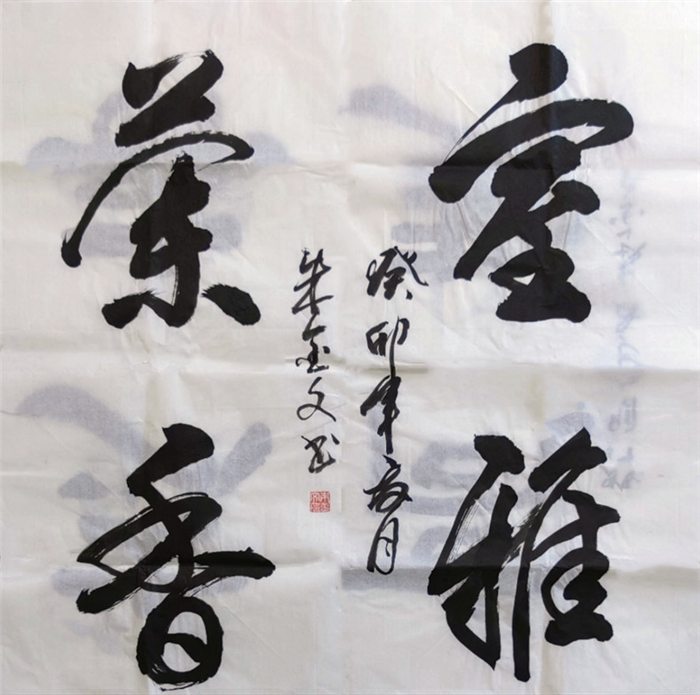 室雅
兰香
癸卯年六月
朱金文书